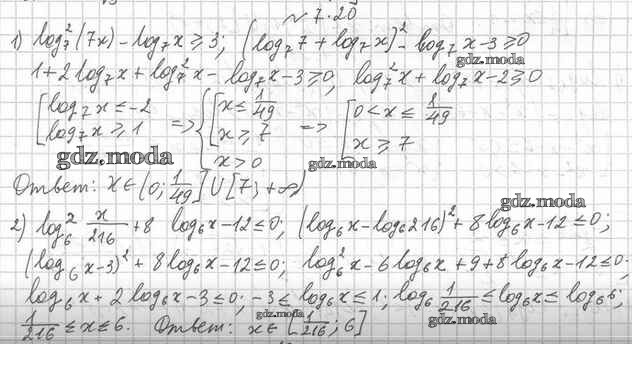 ~ 7.20
1) log₇²(7x) - log₇x ≥ 3; (log₇7 + log₇x)² - log₇x - 3 ≥ 0
gdz.moda
1 + 2log₇x + log₇²x - log₇x - 3 ≥ 0, log₇²x + log₇x - 2 ≥ 0
[log₇x ≤ -2 => {[x ≤ 1/49 => [0 < x ≤ 1/49
log₇x ≥ 1 x ≥ 7 x ≥ 7
x > 0
gdz.moda gdz.moda
Ответ: x ∈ (0; 1/49] U [7; +∞)
gdz.moda
2) log₆² x/216 + 8 log₆x - 12 ≤ 0; (log₆x - log₆216)² + 8log₆x - 12 ≤ 0;
(log₆x - 3)² + 8log₆x - 12 ≤ 0; log₆²x - 6log₆x + 9 + 8log₆x - 12 ≤ 0;
log₆x + 2log₆x - 3 ≤ 0; -3 ≤ log₆x ≤ 1; log₆ 1/216 ≤ log₆x ≤ log₆6;
gdz.moda gdz.moda
1/216 ≤ x ≤ 6. Ответ: x ∈ [1/216; 6]